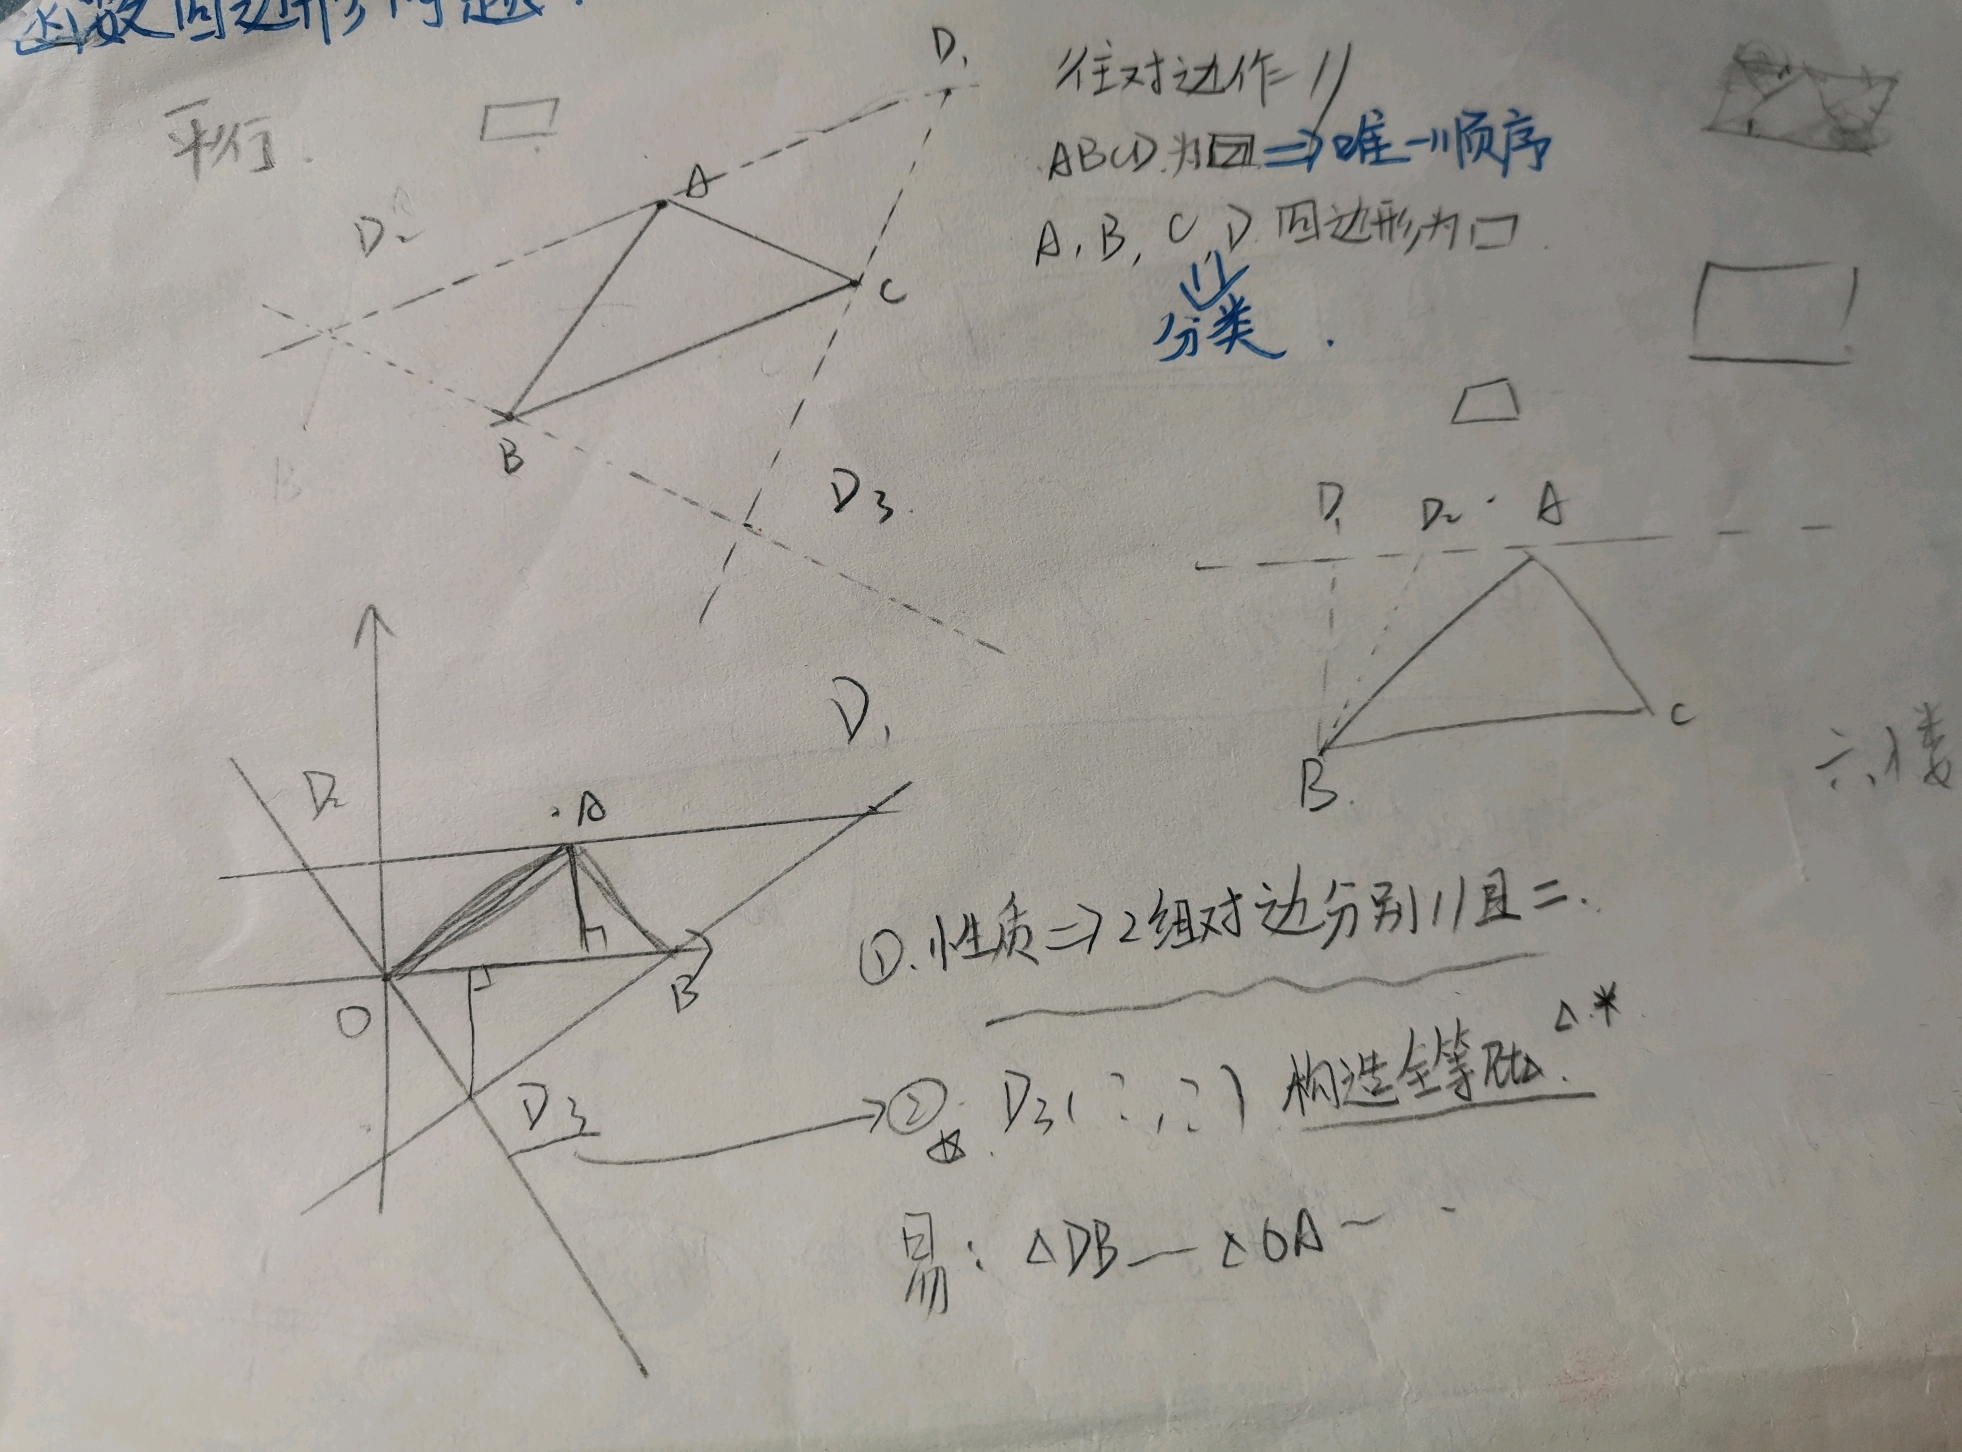 函数四边形问题.
平行.
D₁
往对边作//
ABCD.为▱⇒唯一顺序
A,B,C,D 四边形为▱.
⇓
分类.
A
D₂
C
B
D₃.
D₁ D₂ A
B. C
D₁
D₂ A
O B
D₃
①.性质⇒2组对边分别//且=.
②. D₃( : , : ) 构造全等Rt△. △*
易: △DB— △OA~